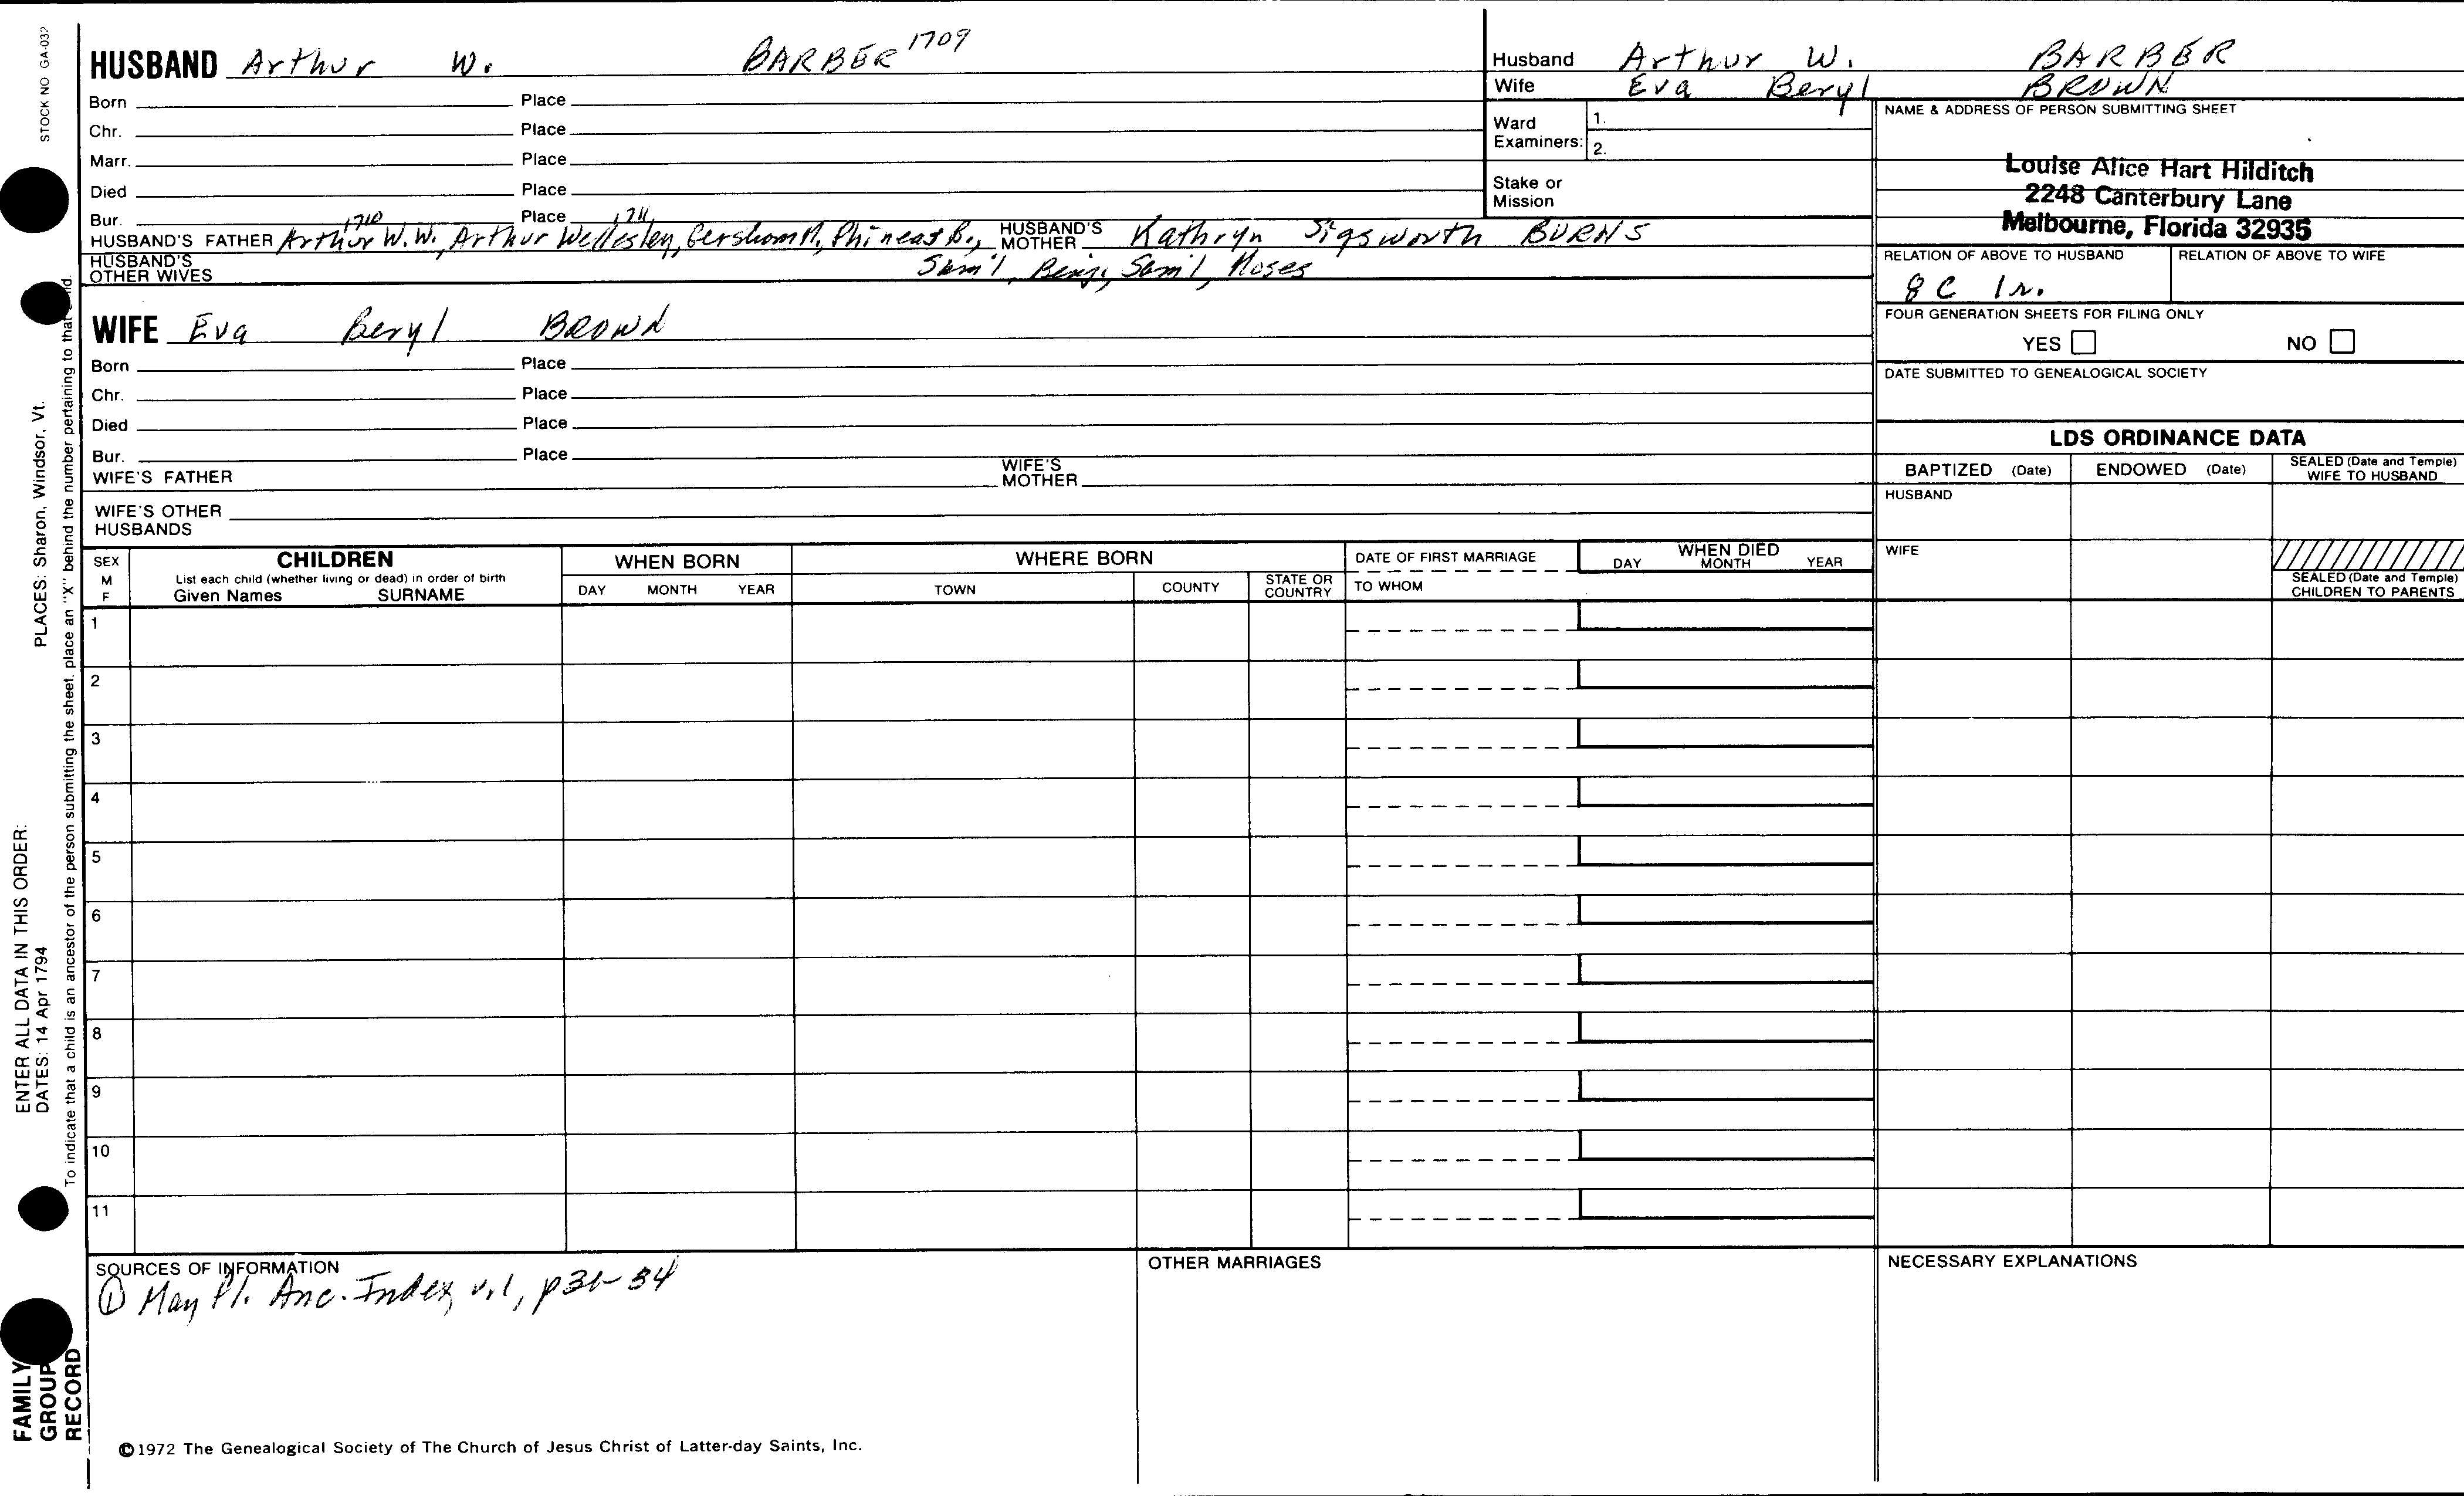 STOCK NO GA-032
HUSBAND Arthur W. BARBER 1709
Born Place
Chr. Place
Marr. Place
Died Place
Bur. Place
1710 1711
HUSBAND'S FATHER Arthur W. W., Arthur Wellesley, Gershom M, Phineas B., HUSBAND'S MOTHER Kathryn Sigsworth BURNS
HUSBAND'S OTHER WIVES Sam'l, Benj., Sam'l, Moses
WIFE Eva Beryl BROWN
Born Place
Chr. Place
Died Place
Bur. Place
WIFE'S FATHER WIFE'S MOTHER
WIFE'S OTHER HUSBANDS
Husband Arthur W. BARBER
Wife Eva Beryl BROWN
Ward Examiners: 1.
2.
Stake or Mission
NAME & ADDRESS OF PERSON SUBMITTING SHEET
Louise Alice Hart Hilditch
2248 Canterbury Lane
Melbourne, Florida 32935
RELATION OF ABOVE TO HUSBAND RELATION OF ABOVE TO WIFE
8 C 1 r.
FOUR GENERATION SHEETS FOR FILING ONLY
YES NO
DATE SUBMITTED TO GENEALOGICAL SOCIETY
LDS ORDINANCE DATA
BAPTIZED (Date) ENDOWED (Date) SEALED (Date and Temple) WIFE TO HUSBAND
HUSBAND
WIFE
SEALED (Date and Temple) CHILDREN TO PARENTS
SEX M F
CHILDREN
List each child (whether living or dead) in order of birth
Given Names SURNAME
WHEN BORN
DAY MONTH YEAR
WHERE BORN
TOWN COUNTY STATE OR COUNTRY
DATE OF FIRST MARRIAGE
TO WHOM
WHEN DIED
DAY MONTH YEAR
1
2
3
4
5
6
7
8
9
10
11
SOURCES OF INFORMATION
① May Fl. Anc. Index, v.1, p 31-34
OTHER MARRIAGES
NECESSARY EXPLANATIONS
©1972 The Genealogical Society of The Church of Jesus Christ of Latter-day Saints, Inc.
ENTER ALL DATA IN THIS ORDER:
DATES: 14 Apr 1794 PLACES: Sharon, Windsor, Vt.
To indicate that a child is an ancestor of the person submitting the sheet, place an "X" behind the number pertaining to that child.
FAMILY
GROUP
RECORD